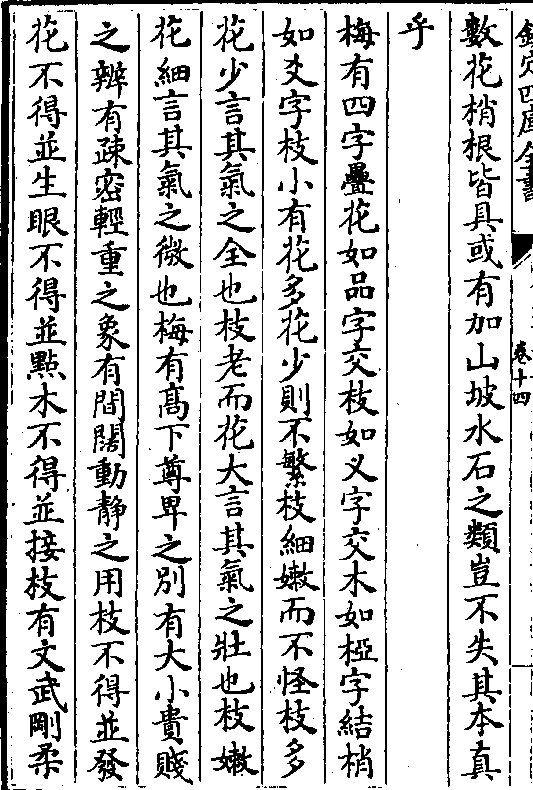 欽定四庫全書
卷十四
數花梢根皆具或有加山坡水石之類豈不失其本真
乎
梅有四字疊花如品字交枝如乂字交木如椏字結梢
如爻字枝小有花多花少則不繁枝細嫩而不怪枝多
花少言其氣之全也枝老而花大言其氣之壯也枝嫩
花細言其氣之微也梅有高下尊卑之別有大小貴賤
之辨有疎密輕重之象有間闊動静之用枝不得並發
花不得並生眼不得並點木不得並接枝有文武剛柔